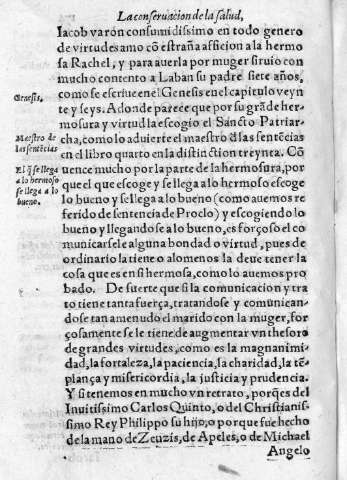 La conseruacion de la salud,
Iacob varón consumidissimo en todo genero
de virtudes amo cõ estraña afficion a la hermo
sa Rachel, y para auerla por muger siruio con
mucho contento a Laban su padre siete años,
Genesis.
como se escriue en el Genesis en el capitulo veyn
te y seys. Adonde parece que por su grãde her-
mosura y virtud la escogio el Sancto Patriar-
Maestro de
las sentẽcias
cha, como lo aduierte el maestro d̃ las sentẽcias
en el libro quarto en la distinction treynta. Cõ
El q̃ se llega
a lo hermoso
se llega a lo
bueno.
uence mucho por la parte de la hermosura, por
que el que escoge y se llega a lo hermoso escoge
lo bueno y se llega a lo bueno (como auemos re
ferido de sentencia de Proclo) y escogiendo lo
bueno y llegandose a lo bueno, es forçoso el co
municarsele alguna bondad o virtud, pues de
ordinario la tiene o alomenos la deue tener la
cosa que es en si hermosa, como lo auemos pro
bado. De suerte que si la comunicacion y tra
to tiene tanta fuerça, tratandose y comunican-
dose tan amenudo el marido con la muger, for
çosamente se le tiene de augmentar vn thesoro
de grandes virtudes, como es la magnanimi-
dad, la fortaleza, la paciencia, la charidad, la tẽ
plança y misericordia, la justicia y prudencia.
Y si tenemos en mucho vn retrato, porq̃es del
Inuitissimo Carlos Quinto, o del Christianis-
simo Rey Philippo su hijo, o porque fue hecho
de la mano de Zeuzis, de Apeles, o de Michael
Angelo